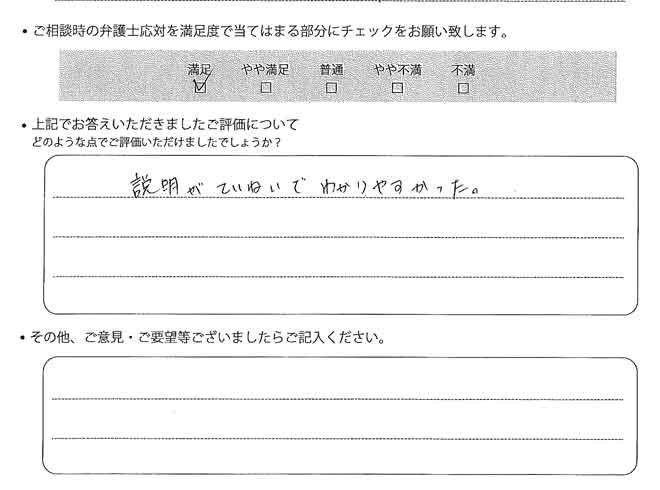 • ご相談時の弁護士応対を満足度で当てはまる部分にチェックをお願い致します。
満足 やや満足 普通 やや不満 不満
☑ □ □ □ □
• 上記でお答えいただきましたご評価について
どのような点でご評価いただけましたでしょうか？
説明がていねいでわかりやすかった。
• その他、ご意見・ご要望等ございましたらご記入ください。